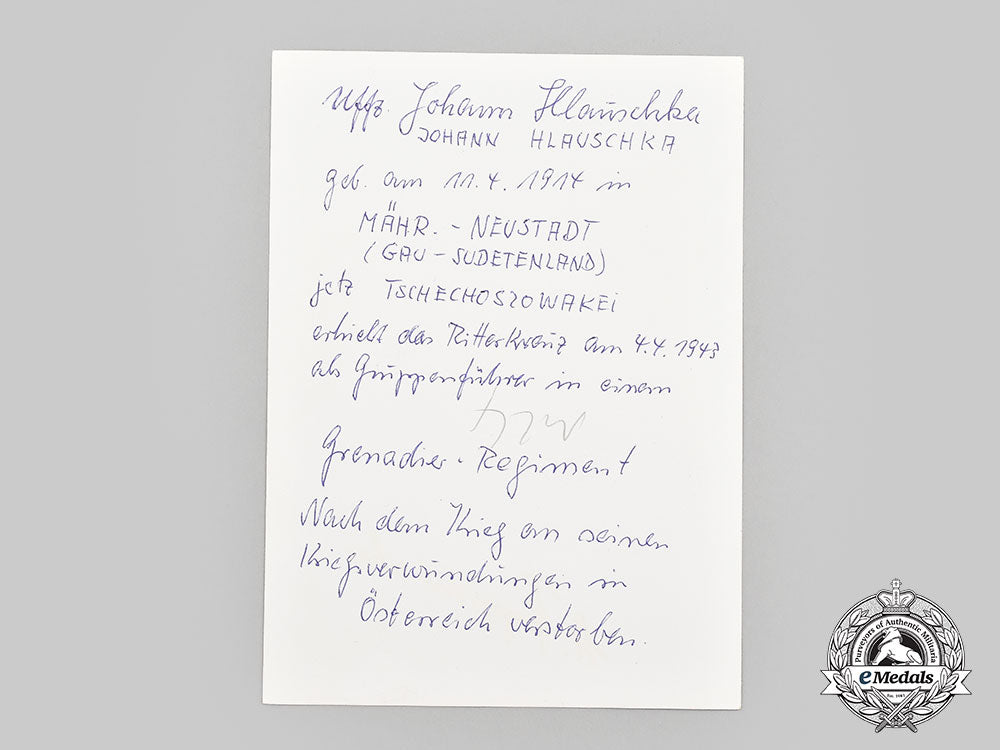 Uffz. Johann Hlauschka
JOHANN HLAUSCHKA
geb. am 11.4.1914 in
MÄHR. - NEUSTADT
(GAU - SUDETENLAND)
jetz TSCHECHOSLOWAKEI
erhielt das Ritterkreuz am 4.4.1943
als Gruppenführer in einem
Grenadier - Regiment
Nach dem Krieg an seinen
Kriegsverwundungen in
Österreich verstorben.
Purveyors of Authentic Militaria
eMedals